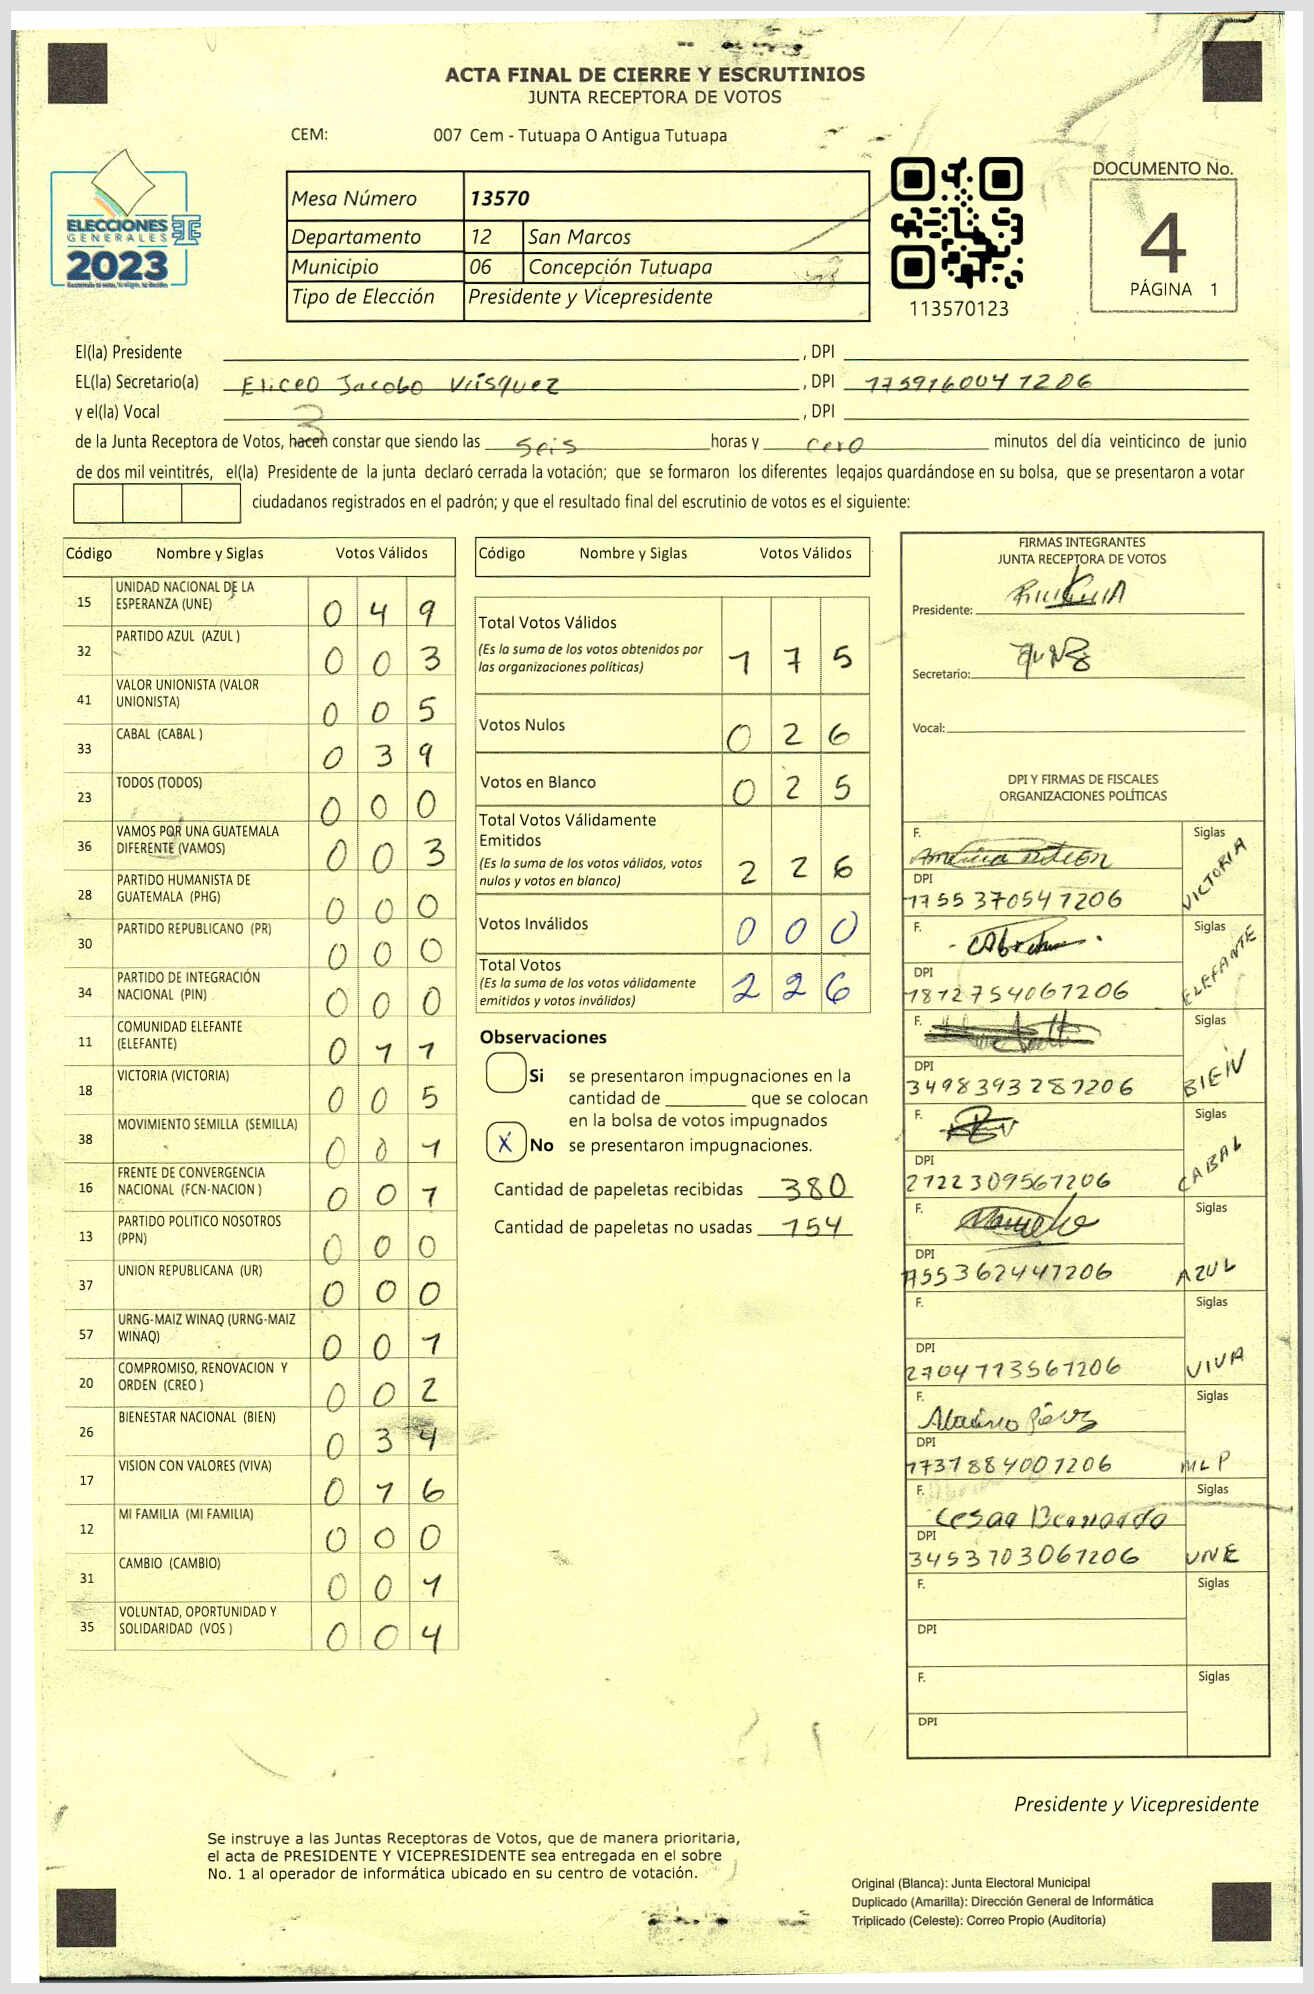 ACTA FINAL DE CIERRE Y ESCRUTINIOS
JUNTA RECEPTORA DE VOTOS
CEM: 007 Cem - Tutuapa O Antigua Tutuapa
ELECCIONES
GENERALES
2023
Mesa Número 13570
Departamento 12 San Marcos
Municipio 06 Concepción Tutuapa
Tipo de Elección Presidente y Vicepresidente
113570123
DOCUMENTO No.
4
PÁGINA 1
El(la) Presidente , DPI
EL(la) Secretario(a) Eliceo Jacobo Vásquez , DPI 1759160041206
y el(la) Vocal , DPI
3
de la Junta Receptora de Votos, hacen constar que siendo las seis horas y cero minutos del día veinticinco de junio
de dos mil veintitrés, el(la) Presidente de la junta declaró cerrada la votación; que se formaron los diferentes legajos guardándose en su bolsa, que se presentaron a votar
ciudadanos registrados en el padrón; y que el resultado final del escrutinio de votos es el siguiente:
Código Nombre y Siglas Votos Válidos
15 UNIDAD NACIONAL DE LA ESPERANZA (UNE) 0 4 9
32 PARTIDO AZUL (AZUL ) 0 0 3
41 VALOR UNIONISTA (VALOR UNIONISTA) 0 0 5
33 CABAL (CABAL ) 0 3 9
23 TODOS (TODOS) 0 0 0
36 VAMOS POR UNA GUATEMALA DIFERENTE (VAMOS) 0 0 3
28 PARTIDO HUMANISTA DE GUATEMALA (PHG) 0 0 0
30 PARTIDO REPUBLICANO (PR) 0 0 0
34 PARTIDO DE INTEGRACIÓN NACIONAL (PIN) 0 0 0
11 COMUNIDAD ELEFANTE (ELEFANTE) 0 1 1
18 VICTORIA (VICTORIA) 0 0 5
38 MOVIMIENTO SEMILLA (SEMILLA) 0 0 1
16 FRENTE DE CONVERGENCIA NACIONAL (FCN-NACION ) 0 0 1
13 PARTIDO POLITICO NOSOTROS (PPN) 0 0 0
37 UNION REPUBLICANA (UR) 0 0 0
57 URNG-MAIZ WINAQ (URNG-MAIZ WINAQ) 0 0 1
20 COMPROMISO, RENOVACION Y ORDEN (CREO ) 0 0 2
26 BIENESTAR NACIONAL (BIEN) 0 3 4
17 VISION CON VALORES (VIVA) 0 1 6
12 MI FAMILIA (MI FAMILIA) 0 0 0
31 CAMBIO (CAMBIO) 0 0 1
35 VOLUNTAD, OPORTUNIDAD Y SOLIDARIDAD (VOS ) 0 0 4
Código Nombre y Siglas Votos Válidos
Total Votos Válidos
(Es la suma de los votos obtenidos por las organizaciones políticas) 1 7 5
Votos Nulos 0 2 6
Votos en Blanco 0 2 5
Total Votos Válidamente Emitidos
(Es la suma de los votos válidos, votos nulos y votos en blanco) 2 2 6
Votos Inválidos 0 0 0
Total Votos
(Es la suma de los votos válidamente emitidos y votos inválidos) 2 2 6
Observaciones
Si se presentaron impugnaciones en la
cantidad de que se colocan
en la bolsa de votos impugnados
X No se presentaron impugnaciones.
Cantidad de papeletas recibidas 380
Cantidad de papeletas no usadas 154
FIRMAS INTEGRANTES
JUNTA RECEPTORA DE VOTOS
Presidente:
Secretario:
Vocal:
DPI Y FIRMAS DE FISCALES
ORGANIZACIONES POLÍTICAS
F. Siglas VICTORIA
DPI
1755370541206
F. Siglas ELEFANTE
DPI
1812754061206
F. Siglas BIEN
DPI
3498393281206
F. Siglas CABAL
DPI
2122309561206
F. Siglas AZUL
DPI
1755362441206
F. Siglas VIVA
DPI
2704113561206
F. Siglas MLP
DPI
1737884001206
F. Cesar Bernardo Siglas UNE
DPI
3453703061206
F. Siglas
DPI
F. Siglas
DPI
Presidente y Vicepresidente
Se instruye a las Juntas Receptoras de Votos, que de manera prioritaria,
el acta de PRESIDENTE Y VICEPRESIDENTE sea entregada en el sobre
No. 1 al operador de informática ubicado en su centro de votación.
Original (Blanca): Junta Electoral Municipal
Duplicado (Amarilla): Dirección General de Informática
Triplicado (Celeste): Correo Propio (Auditoría)